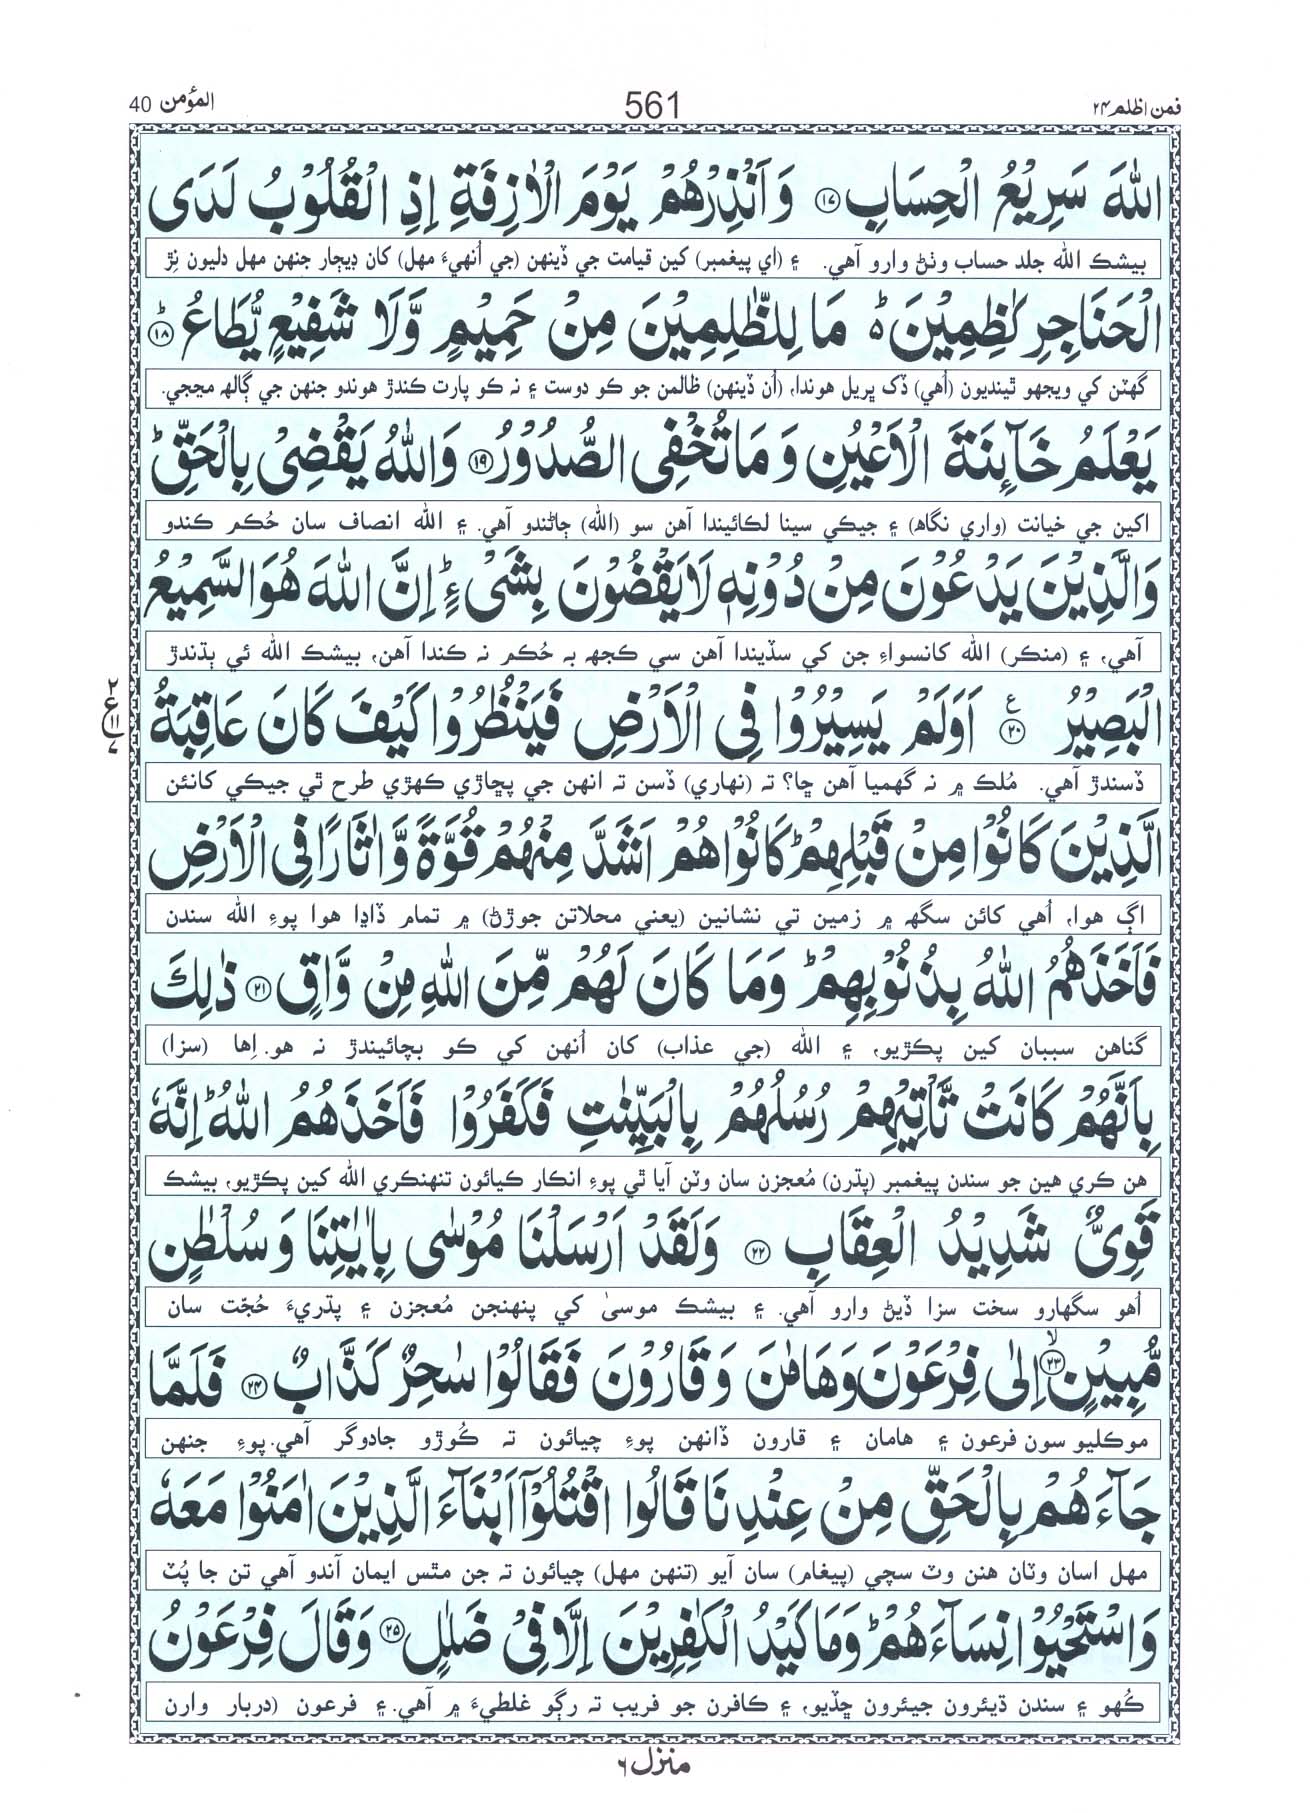 المؤمن 40
561
فمن اظلم ۲۴
اللّٰهَ سَرِيْعُ الْحِسَابِ ﴿۱۷﴾ وَاَنْذِرْهُمْ يَوْمَ الْاٰزِفَةِ اِذِ الْقُلُوْبُ لَدَى
بيشڪ الله جلد حساب وٺڻ وارو آهي. ۽ (اي پيغمبر) کين قيامت جي ڏينهن (جي اُنهيءَ مهل) کان ڊيڄار جنهن مهل دليون نِڙ
الْحَنَاجِرِ كٰظِمِيْنَ ؕ مَا لِلظّٰلِمِيْنَ مِنْ حَمِيْمٍ وَّلَا شَفِيْعٍ يُّطَاعُ ؕ﴿۱۸﴾
گهٽن کي ويجهو ٿينديون (اُهي) ڏک ڀريل هوندا، (اُن ڏينهن) ظالمن جو ڪو دوست ۽ نہ ڪو پارت ڪندڙ هوندو جنهن جي ڳالهہ مڃجي.
يَعْلَمُ خَآئِنَةَ الْاَعْيُنِ وَمَا تُخْفِى الصُّدُوْرُ ﴿۱۹﴾ وَاللّٰهُ يَقْضِىْ بِالْحَقِّ ؕ
اکين جي خيانت (واري نگاهہ) ۽ جيڪي سينا لڪائيندا آهن سو (الله) ڄاڻندو آهي. ۽ الله انصاف سان حُڪم ڪندو
وَالَّذِيْنَ يَدْعُوْنَ مِنْ دُوْنِهٖ لَا يَقْضُوْنَ بِشَىْءٍ ؕ اِنَّ اللّٰهَ هُوَ السَّمِيْعُ
آهي، ۽ (منڪر) الله کانسواءِ جن کي سڏيندا آهن سي ڪجهہ بہ حُڪم نہ ڪندا آهن، بيشڪ الله ئي ٻڌندڙ
الْبَصِيْرُ ﴿۲۰﴾ ع اَوَلَمْ يَسِيْرُوْا فِى الْاَرْضِ فَيَنْظُرُوْا كَيْفَ كَانَ عَاقِبَةُ
۲ ع ۱۱ ۷
ڏسندڙ آهي. مُلڪ ۾ نہ گهميا آهن ڇا؟ تہ (نهاري) ڏسن تہ انهن جي پڇاڙي ڪهڙي طرح ٿي جيڪي کانئن
الَّذِيْنَ كَانُوْا مِنْ قَبْلِهِمْ ؕ كَانُوْا هُمْ اَشَدَّ مِنْهُمْ قُوَّةً وَّاٰثَارًا فِى الْاَرْضِ
اڳ هوا، اُهي کائن سگهہ ۾ زمين تي نشانين (يعني محلاتن جوڙڻ) ۾ تمام ڏاڍا هوا پوءِ الله سندن
فَاَخَذَهُمُ اللّٰهُ بِذُنُوْبِهِمْ ؕ وَمَا كَانَ لَهُمْ مِّنَ اللّٰهِ مِنْ وَّاقٍ ﴿۲۱﴾ ذٰلِكَ
گناهن سببان کين پڪڙيو، ۽ الله (جي عذاب) کان اُنهن کي ڪو بچائيندڙ نہ هو. اِها (سزا)
بِاَنَّهُمْ كَانَتْ تَّاْتِيْهِمْ رُسُلُهُمْ بِالْبَيِّنٰتِ فَكَفَرُوْا فَاَخَذَهُمُ اللّٰهُ ؕ اِنَّهٗ
هن ڪري هين جو سندن پيغمبر (پڌرن) مُعجزن سان وٽن آيا ٿي پوءِ انڪار ڪيائون تنهنڪري الله کين پڪڙيو، بيشڪ
قَوِىٌّ شَدِيْدُ الْعِقَابِ ﴿۲۲﴾ وَلَقَدْ اَرْسَلْنَا مُوْسٰى بِاٰيٰتِنَا وَسُلْطٰنٍ
اُهو سگهارو سخت سزا ڏيڻ وارو آهي. ۽ بيشڪ موسىٰ کي پنهنجن مُعجزن ۽ پڌريءَ حُجّت سان
مُّبِيْنٍ ۙ﴿۲۳﴾ اِلٰى فِرْعَوْنَ وَهَامٰنَ وَقَارُوْنَ فَقَالُوْا سٰحِرٌ كَذَّابٌ ﴿۲۴﴾ فَلَمَّا
موڪليو سون فرعون ۽ هامان ۽ قارون ڏانهن پوءِ چيائون تہ ڪُوڙو جادوگر آهي. پوءِ جنهن
جَآءَهُمْ بِالْحَقِّ مِنْ عِنْدِنَا قَالُوا اقْتُلُوْٓا اَبْنَآءَ الَّذِيْنَ اٰمَنُوْا مَعَهٗ
مهل اسان وٽان هنن وٽ سچي (پيغام) سان آيو (تنهن مهل) چيائون تہ جن مٿس ايمان آندو آهي تن جا پُٽ
وَاسْتَحْيُوْا نِسَآءَهُمْ ؕ وَمَا كَيْدُ الْكٰفِرِيْنَ اِلَّا فِىْ ضَلٰلٍ ﴿۲۵﴾ وَقَالَ فِرْعَوْنُ
ڪُهو ۽ سندن ڌيئرون جيئرون ڇڏيو، ۽ ڪافرن جو فريب تہ رڳو غلطيءَ ۾ آهي. ۽ فرعون (دربار وارن
منزل ۶